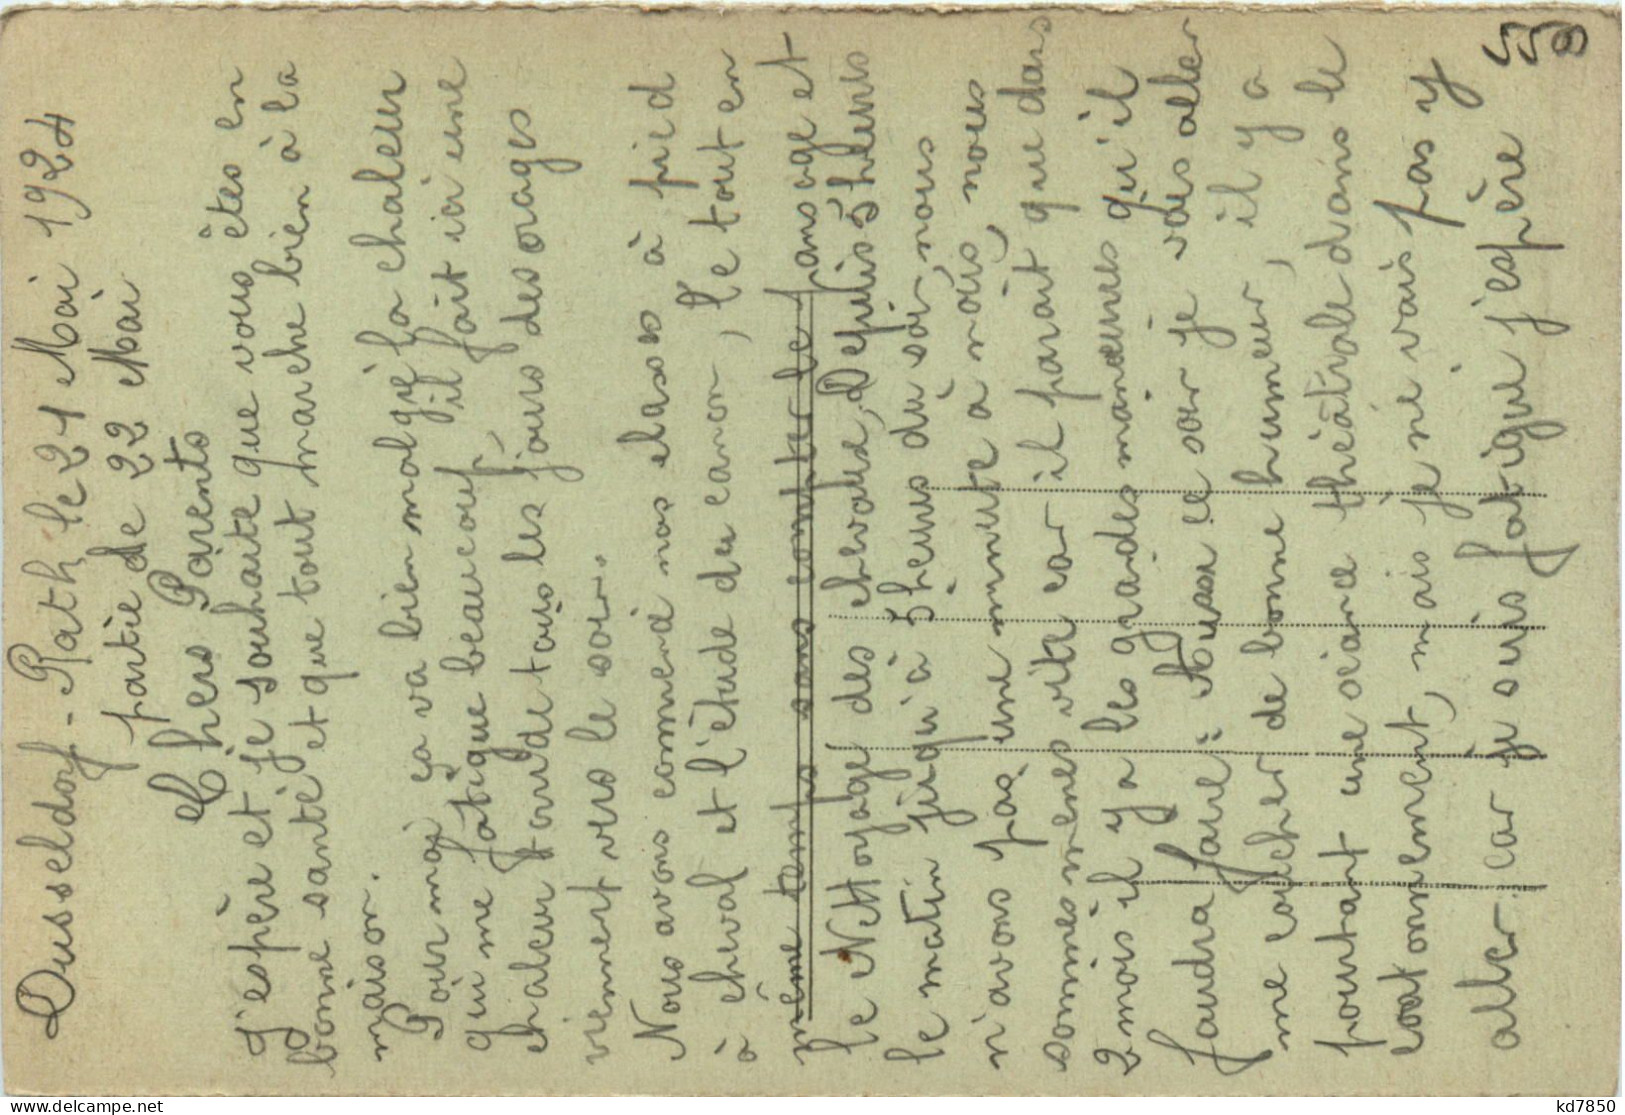 Dusseldorf-Rath le 21 Mai 1924
partie de 22 Mai
Chers Parents
J'espère et je souhaite que vous êtes en
bonne santé et que tout marche bien à la
maison.
Pour moi ça va bien malgré la chaleur
qui me fatigue beaucoup, il fait ici une
chaleur lourde tous les jours des orages
viennent vers le soir.
Nous avons commencé nos classes à pied
à cheval et l'étude du canon, le tout en
même temps sans compter le pansage et
le Nettoyage des chevaux, Depuis 5 heures
le matin jusqu'à 9 heures du soir, nous
n'avons pas une minute à nous, nous
sommes menés vite car il parait que dans
2 mois il y a les grandes manœuvres qu'il
faudra faire. Aussi ce soir je vais aller
me coucher de bonne humeur, il y a
pourtant une séance théâtrale dans le
cantonnement, mais je ne vais pas y
aller car je suis fatigué j'espère
kd7850